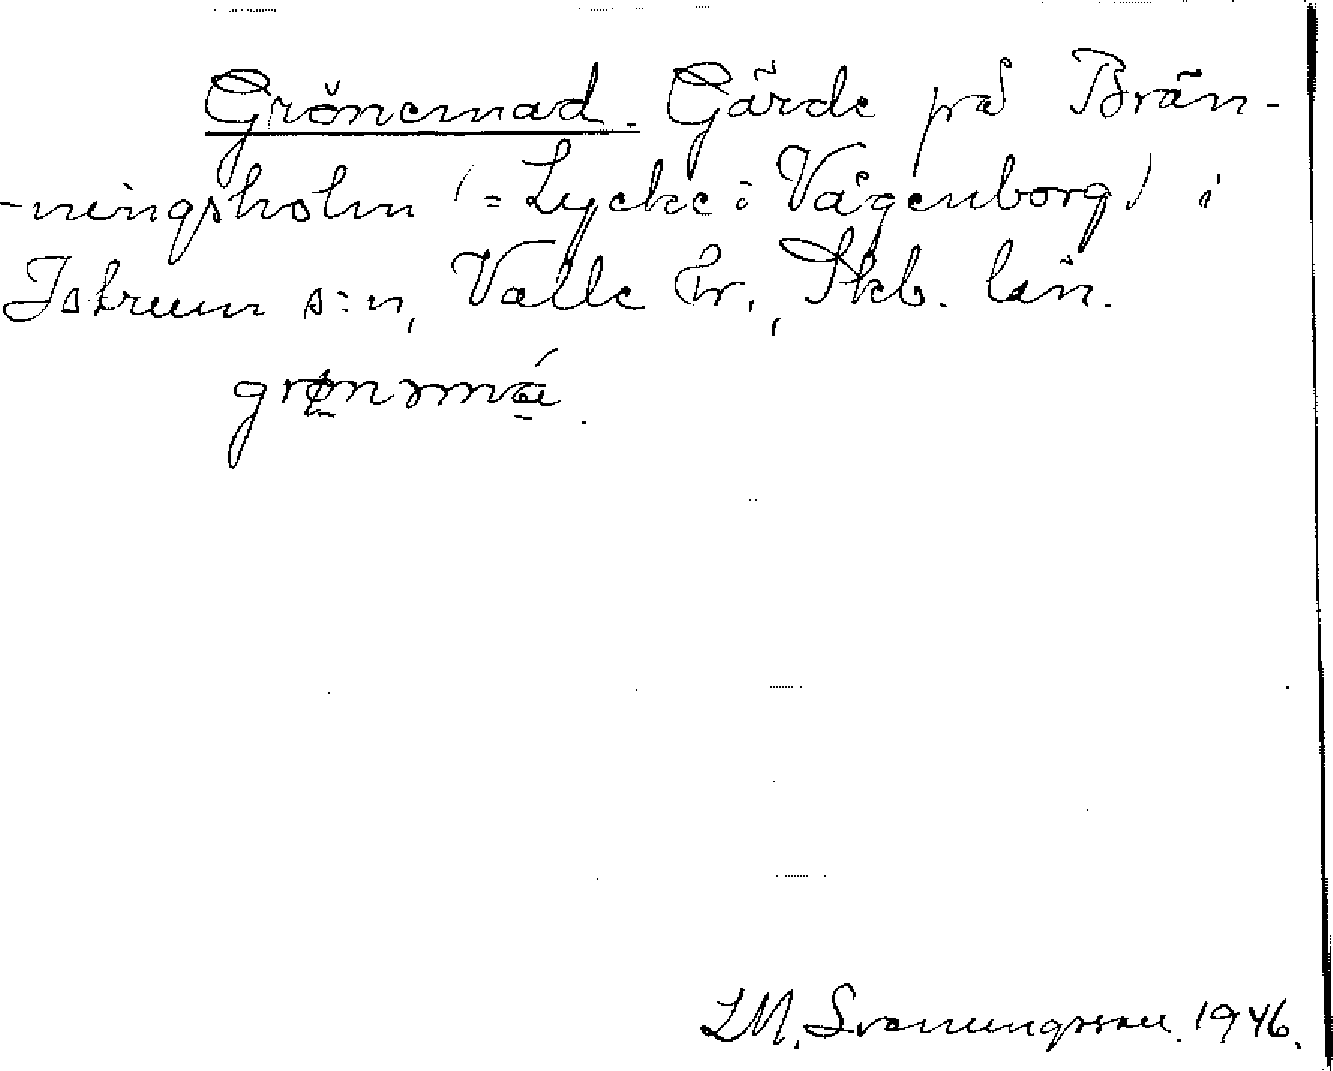 Grönemad. Gärde på Brän-
-ningsholm (= Lycke i Vågenborg) i
Istrum s:n, Valle hr., Skb. län.
grønəmá.
LM. Svenungsson. 1946.